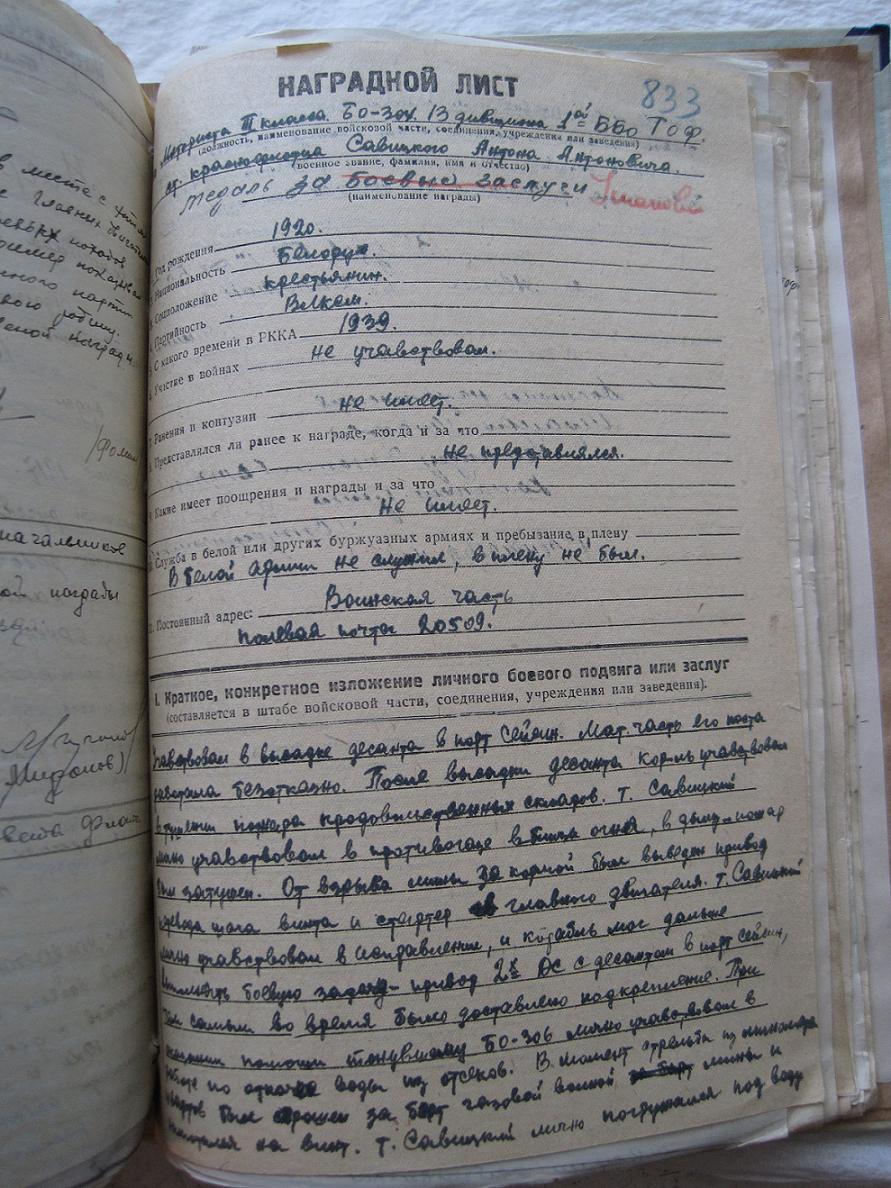 НАГРАДНОЙ ЛИСТ
833
Моториста III класса. БО-304 13 дивизиона 1ой ББО ТОФ.
(должность, наименование войсковой части, соединения, учреждения или заведения)
ст. краснофлотца Савицкого Антона Антоновича.
(военное звание, фамилия, имя и отчество)
медаль за боевые заслуги Ушакова
(наименование награды)
Год рождения 1920.
Национальность Белорус.
3. Соцположение крестьянин.
4. Партийность ВЛКСМ.
5. С какого времени в РККА 1939.
6. Участие в войнах не учавствовал.
7. Ранения и контузии не имеет.
8. Представлялся ли ранее к награде, когда и за что
не представлялся.
9. Какие имеет поощрения и награды и за что
Не имеет.
10. Служба в белой или других буржуазных армиях и пребывание в плену
В белой армии не служил, в плену не был.
11. Постоянный адрес: Воинская часть
полевая почта 20509.
I. Краткое, конкретное изложение личного боевого подвига или заслуг
(составляется в штабе войсковой части, соединения, учреждения или заведения).
Учавствовал в высадке десанта в порт Сейсин. Мат. часть его поста
работала безотказно. После высадки десанта корабль учавствовал
в тушении пожара продовольственных складов. т. Савицкий
лично учавствовал в противогазе вблизи огня, в дыму и пожар
был затушен. От взрыва мины за кормой был выведен привод
перевода шага винта и стартер главного двигателя. т. Савицкий
лично учавствовал в исправлении, и корабль мог дальше
выполнять боевую задачу - привод 2х ДС с десантом в порт Сейсин,
тем самым во время было доставлено подкрепление. При
оказании помощи тонувшему БО-306 лично учавствовал в
работе по откачке воды из отсеков. В момент стрельбы из миномета
был сброшен за борт газовой волной мины и
на винт. т. Савицкий лично погружался под воду
в месте с
главных
пример показывал
свою работу.
/Фомин
начальников
ой награды
Миронов)
Совета Флота